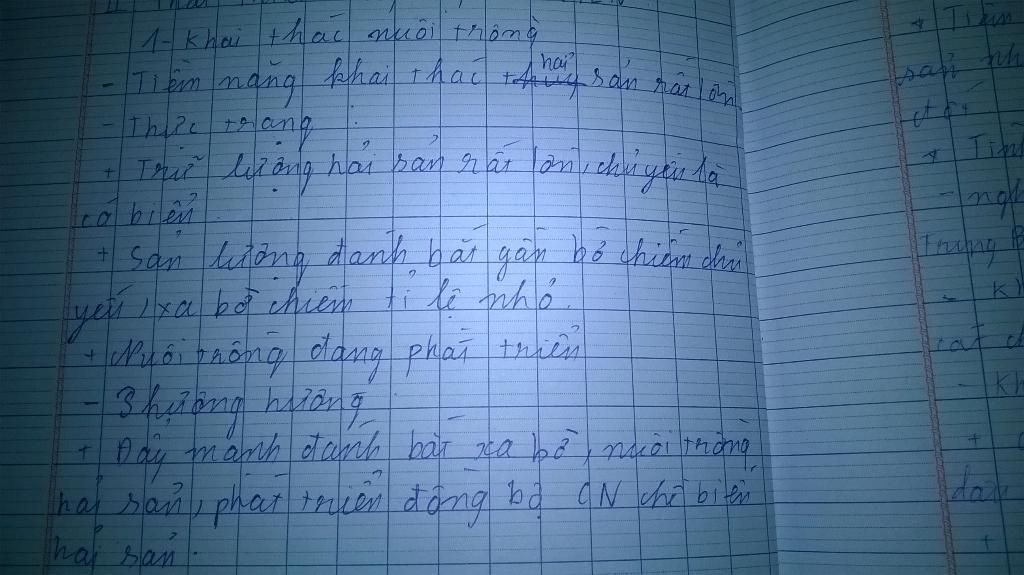 1- Khai thác nuôi trồng
- Tiềm năng khai thác hải sản rất lớn
- Thực trạng :
+ Trữ lượng hải sản rất lớn, chủ yếu là
cá biển.
+ Sản lượng đánh bắt gần bờ chiếm chủ
yếu, xa bờ chiếm tỉ lệ nhỏ.
+ Nuôi trồng đang phát triển
- Phương hướng
+ Đẩy mạnh đánh bắt xa bờ, nuôi trồng
hải sản, phát triển đồng bộ CN chế biến
hải sản.
+ Tiềm
sản
+
-
Trung
-
-
+
+